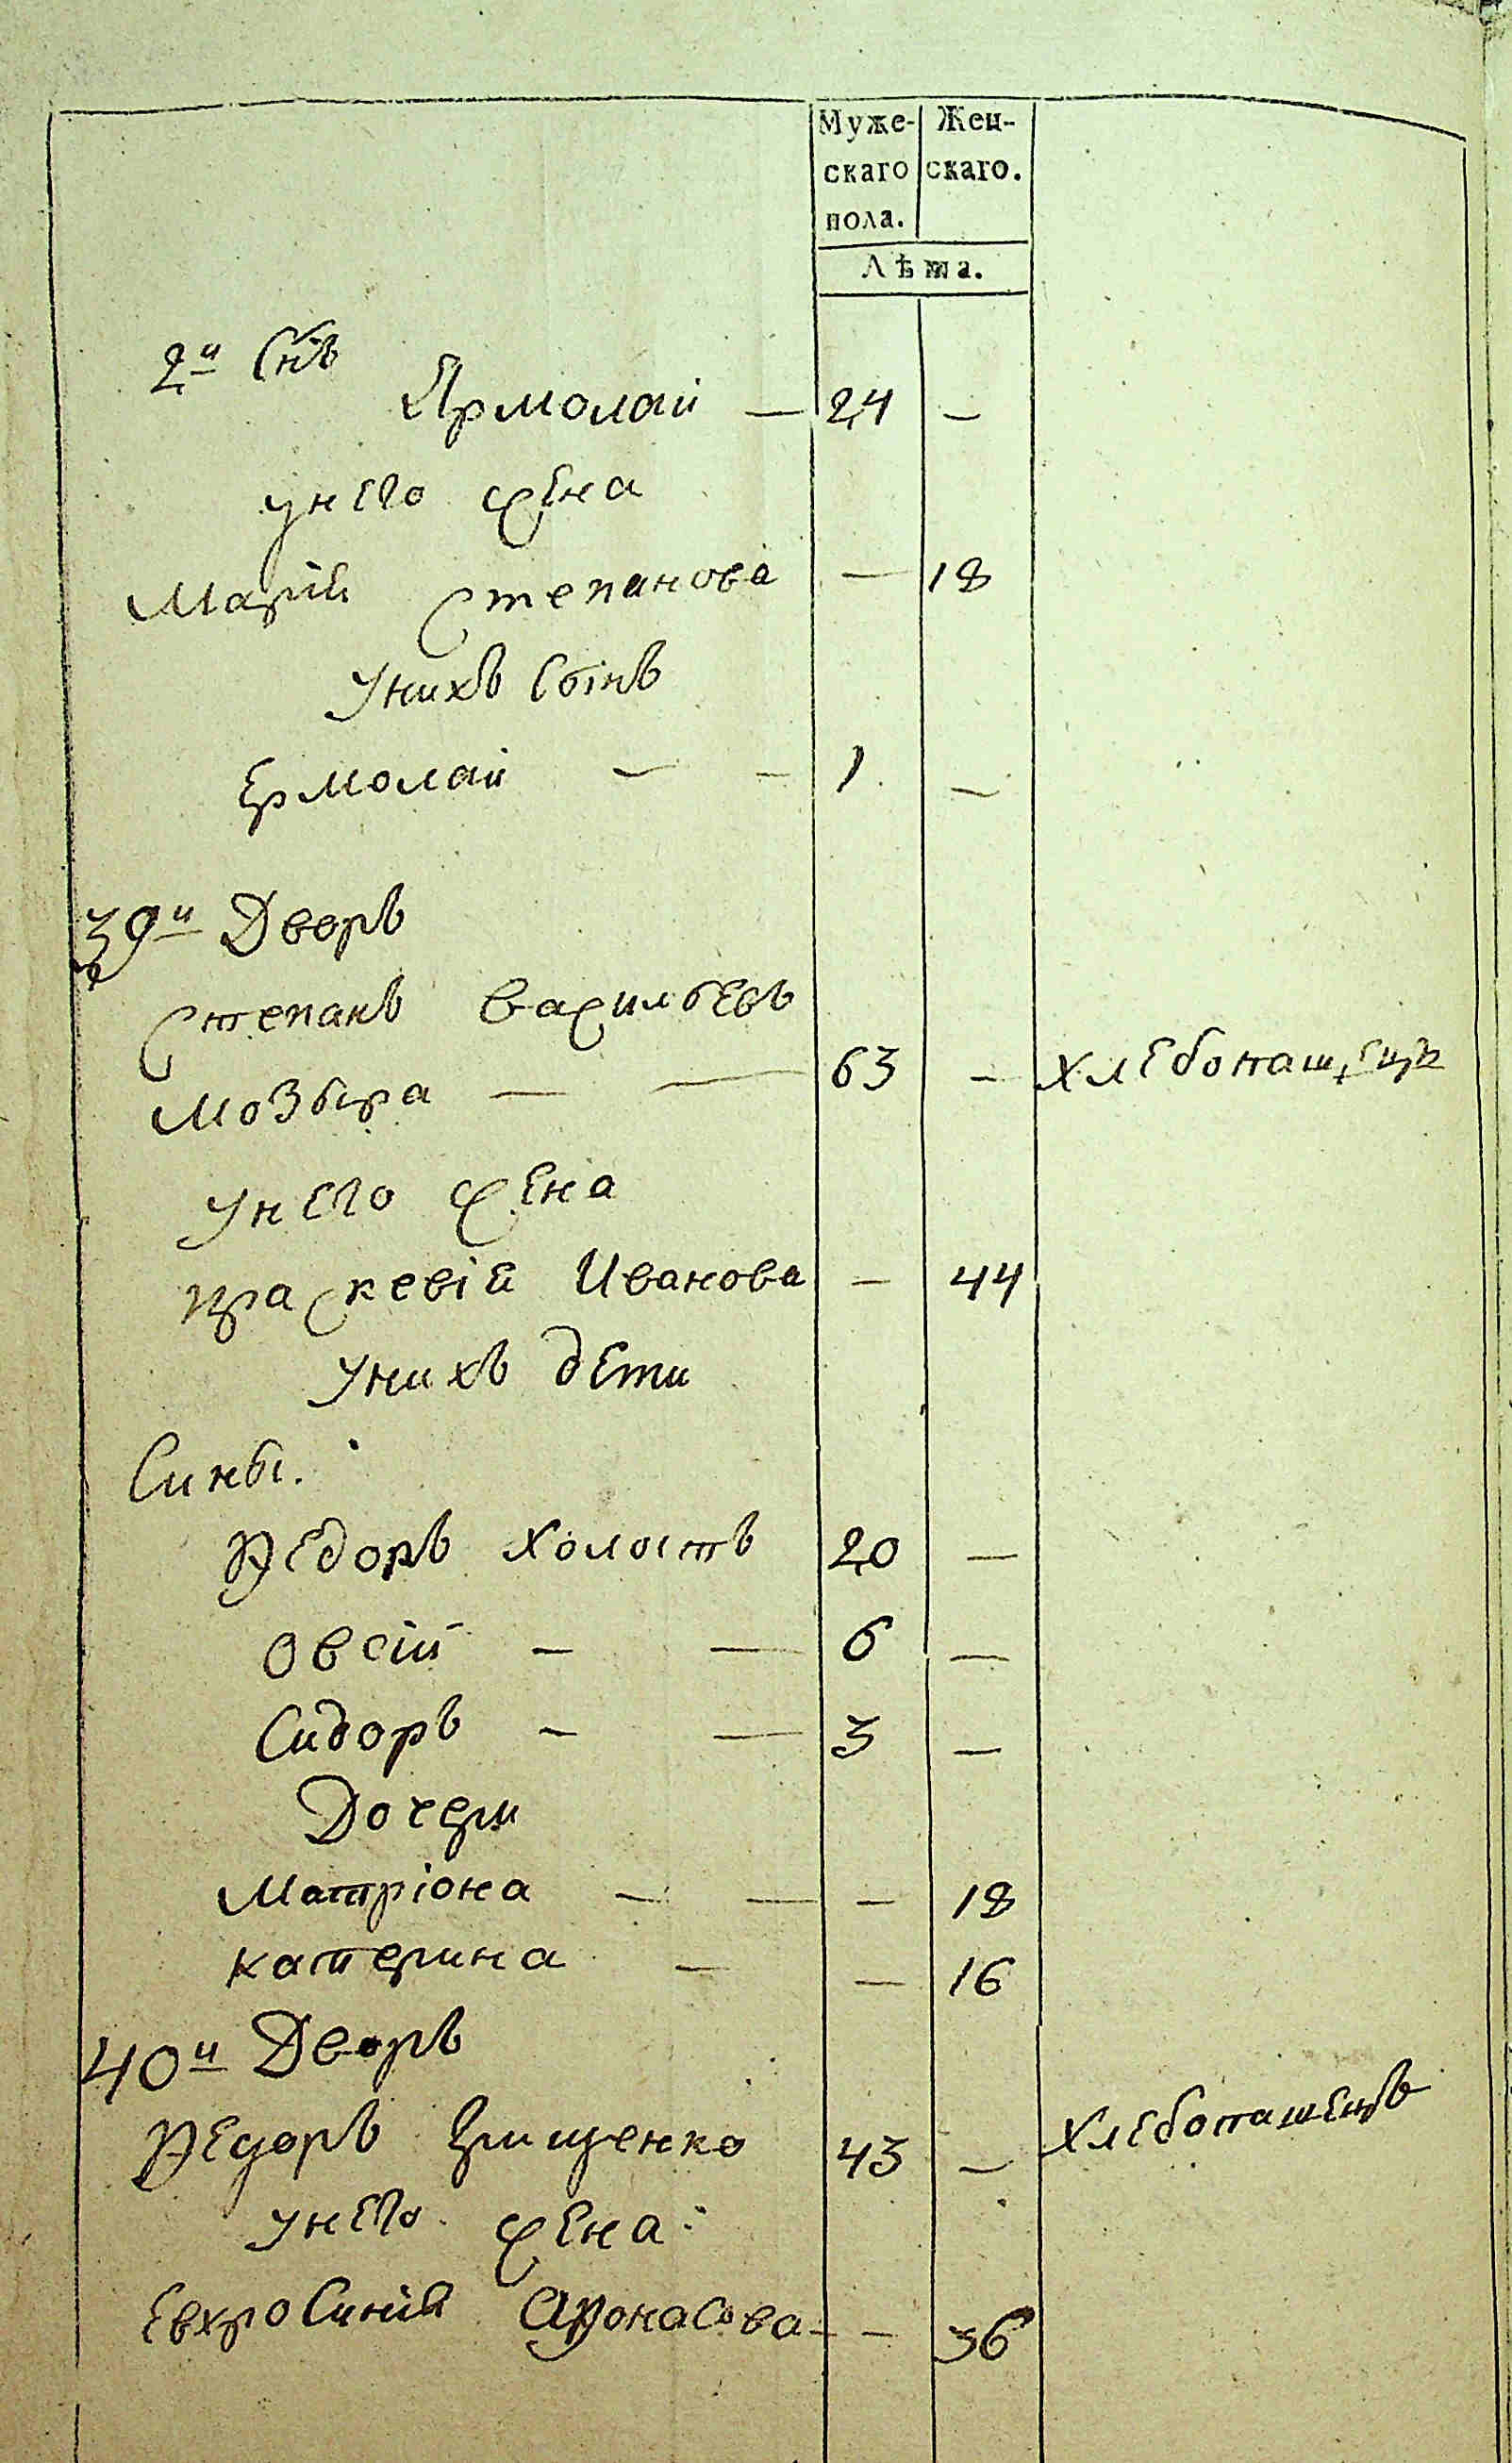 Муже-
скаго
пола.
Жен-
скаго.
Лѣта.
2й Снъ
Ярмолай — 24 —
унего жена
Марія Степанова — 18
Унихъ Сынъ
Ермолай — — 1 —
39й Дворъ
Степанъ Васильевъ
Мозыра — — 63 — хлебопашецъ
Унего жена
праскевія Иванова — 44
Унихъ дети
Сины.
Федоръ холостъ 20 —
Овсій — — 6 —
Сидоръ — — 3 —
Дочери
Матріона — — — 18
катерина — — 16
40й Дворъ
Федоръ Грищенко 43 — Хлебопашецъ
унего жена
Евхросинія Афонасова — — 36